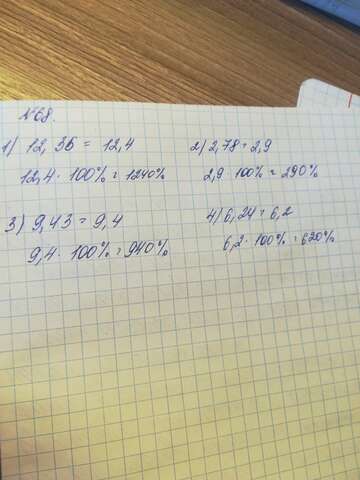 №68.
1) 12,36 = 12,4
12,4 · 100% = 1240%
2) 2,78 = 2,9
2,9 · 100% = 290%
3) 9,43 = 9,4
9,4 · 100% = 940%
4) 6,24 = 6,2
6,2 · 100% = 620%